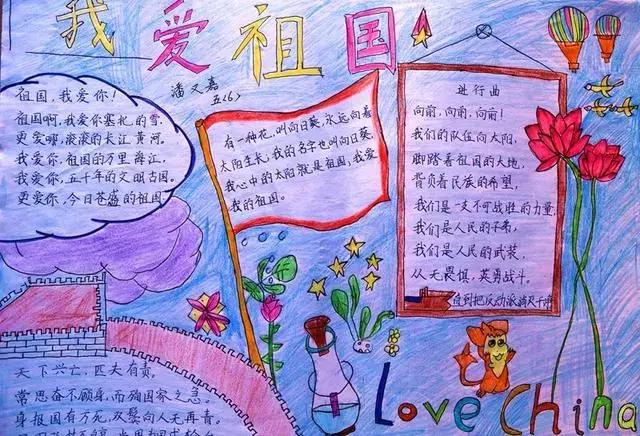 我爱祖国
潘又嘉
五(6)
祖国,我爱你!
祖国啊,我爱你塞北的雪.
更爱哪,滚滚的长江黄河.
我爱你,祖国的万里薛江,
我爱你,五千年的文明古国.
更爱你,今日苍盛的祖国.
有一种花,叫向日葵,永远向着
太阳生长,我的名字也叫向日葵,
我心中的太阳就是祖国,我爱
我的祖国。
进行曲
向前,向前,向前!
我们的队伍向太阳,
脚踏着祖国的大地,
背负着民族的希望,
我们是一支不可战胜的力量,
我们是人民的子弟,
我们是人民的武装,
从无畏惧,英勇战斗。
直到把反动派消灭干净
天下兴亡,匹夫有责.
常思奋不顾身,而殉国家之急.
身报国有万死,双鬓向人无再青.
Love China